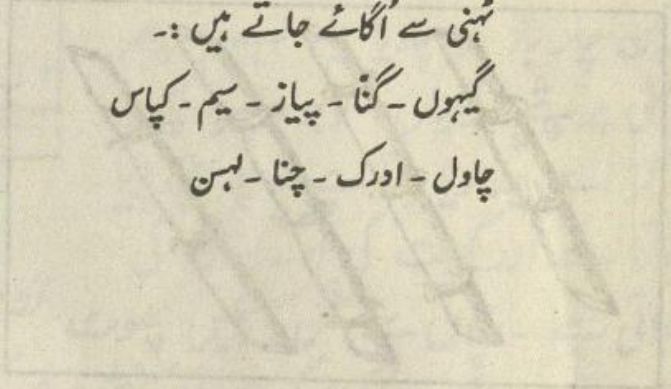 ٹہنی سے اُگائے جاتے ہیں :۔
گیہوں ۔ گنّا ۔ پیاز ۔ سیم ۔ کپاس
چاول ۔ ادرک ۔ چنا ۔ لہسن